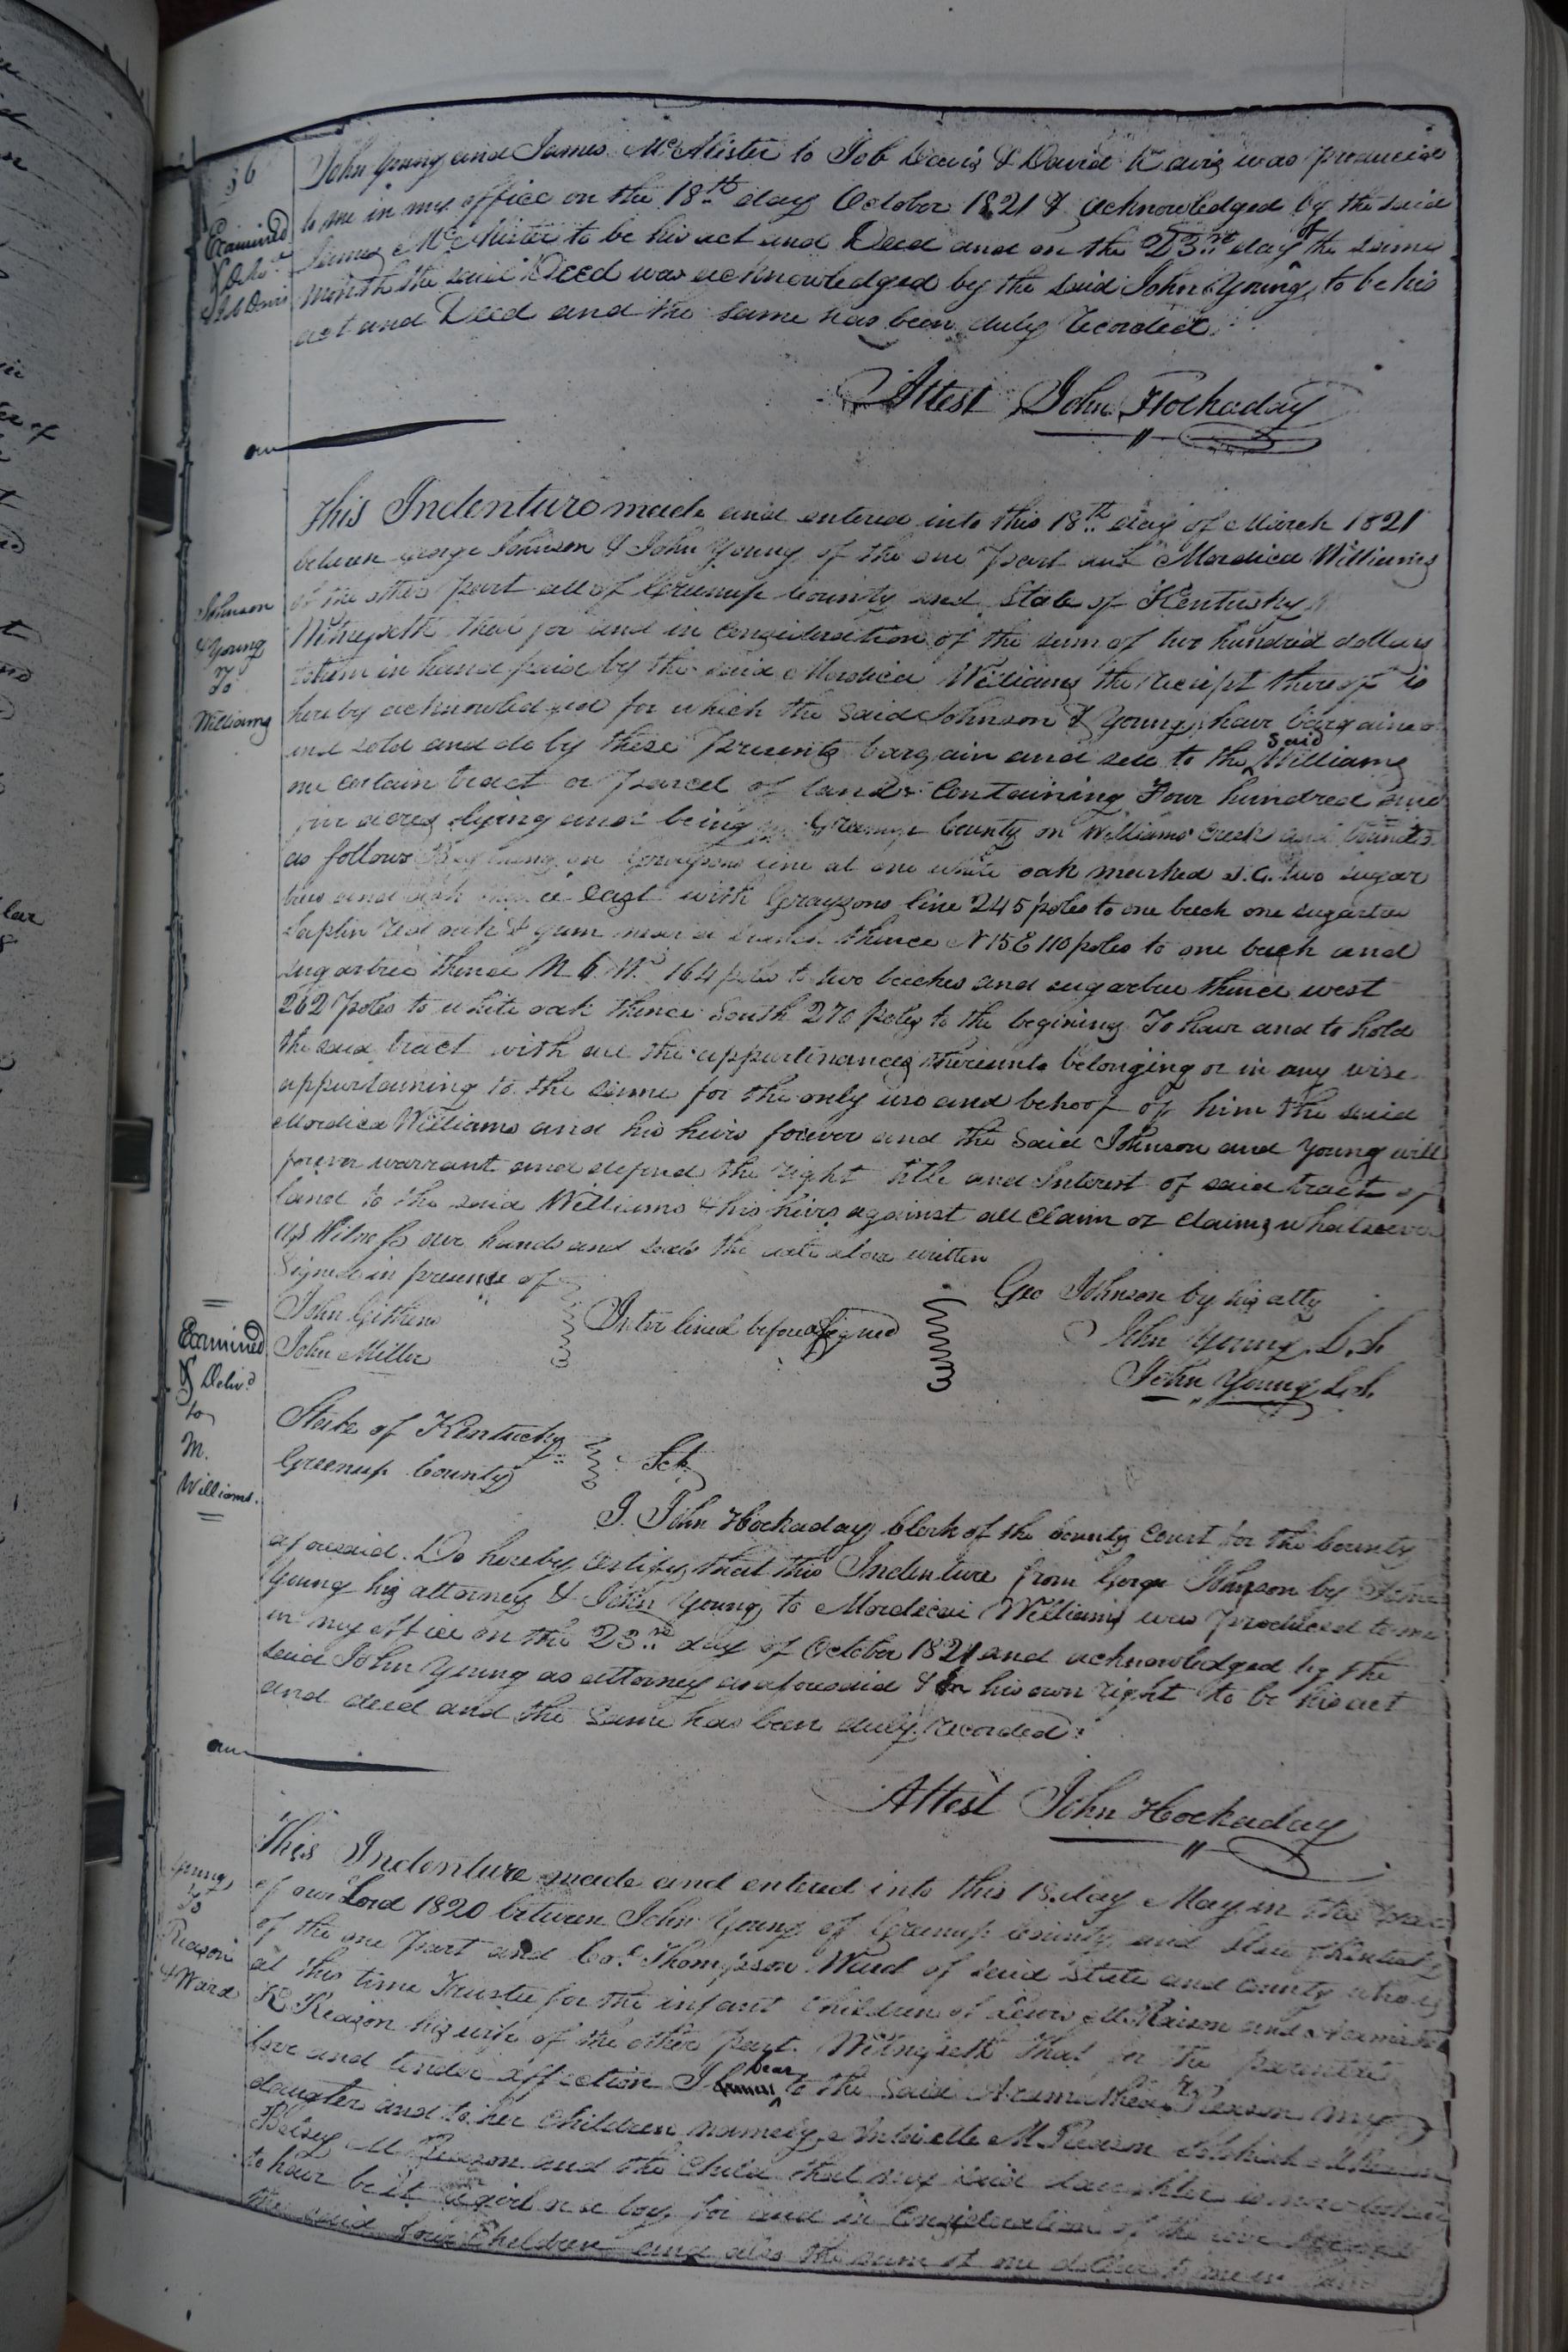 36
John Young and James McAlister to Job Davis & David Davis was produced
to me in my office on the 18th day October 1821 & acknowledged by the said
James McAlister to be his act and Deed and on the 23rd day of the same
month the said Deed was acknowledged by the said John Young to be his
act and Deed and the same has been duly recorded
Examined
Attest John Hockaday
This Indenture made and entered into this 18th day of March 1821
between George Johnson & John Young of the one part and Mordica Williams
of the other part all of Greenup County and State of Kentucky
Witnesseth that for and in Consideration of the sum of two hundred dollars
to them in hand paid by the said Mordica Williams the receipt thereof is
hereby acknowledged for which the said Johnson & Young have bargained
and sold and do by these presents bargain and sell to the said Williams
one certain tract or parcel of land Containing Four hundred and
five acres lying and being in Greenup County on Williams Creek and bounded
as follows Begining on Graysons line at one white oak marked I.G. two sugar
trees and thence East with Graysons line 245 poles to one beech one sugartree
saplin red oak & gum near a thence N 15 E 110 poles to one beech and
sugartree thence N 6 W 164 poles to two beeches and sugartree thence west
262 poles to white oak thence South 270 poles to the begining To have and to hold
the said tract with all the appurtinances thereunto belonging or in any wise
appurtaining to the same for the only use and behoof of him the said
Mordica Williams and his heirs forever and the said Johnson and Young will
forever warrant and defend the right title and Interest of said tract of
land to the said Williams & his heirs against all Claim or Claims whatsoever
As Witness our hands and seals the date above written
Johnson
& Young
To
Williams
Signed in presence of
John Gitthens
John Miller
Interlined before signed
Geo Johnson by his atty
John Young L.S.
John Young L.S.
Examined
& Delivd
to
M.
Williams.
State of Kentucky
Greenup County
Sct
I. John Hockaday Clerk of the County Court for the County
aforesaid. Do hereby Certify that this Indenture from George Johnson by John
Young his attorney & John Young to Mordicai Williams was produced to me
in my office on the 23rd day of October 1821 and acknowledged by the
said John Young as attorney as aforesaid & In his own right to be his act
and deed and the same has been duly recorded
Attest John Hockaday
This Indenture made and entered into this 18 day May in the Year
of our Lord 1820 between John Young of Greenup County and State of Kentucky
of the one part and Col. Thompson Ward of said State and County who is
at this time Trustee for the infant Children of Lewis M Reason and Aramintha
R Reason his wife of the other part. Witnesseth that for the parental
love and tender affection I bear to the said Aramintha R Reason my
daughter and to her Children namely M Reason
Betsey M Reason and the Child that my said daughter is now
to have be it a girl or a boy, for and in Consideration of the love
the said four Children and also the sum of one dollar to me in hand
Young
To
Reason
& Ward